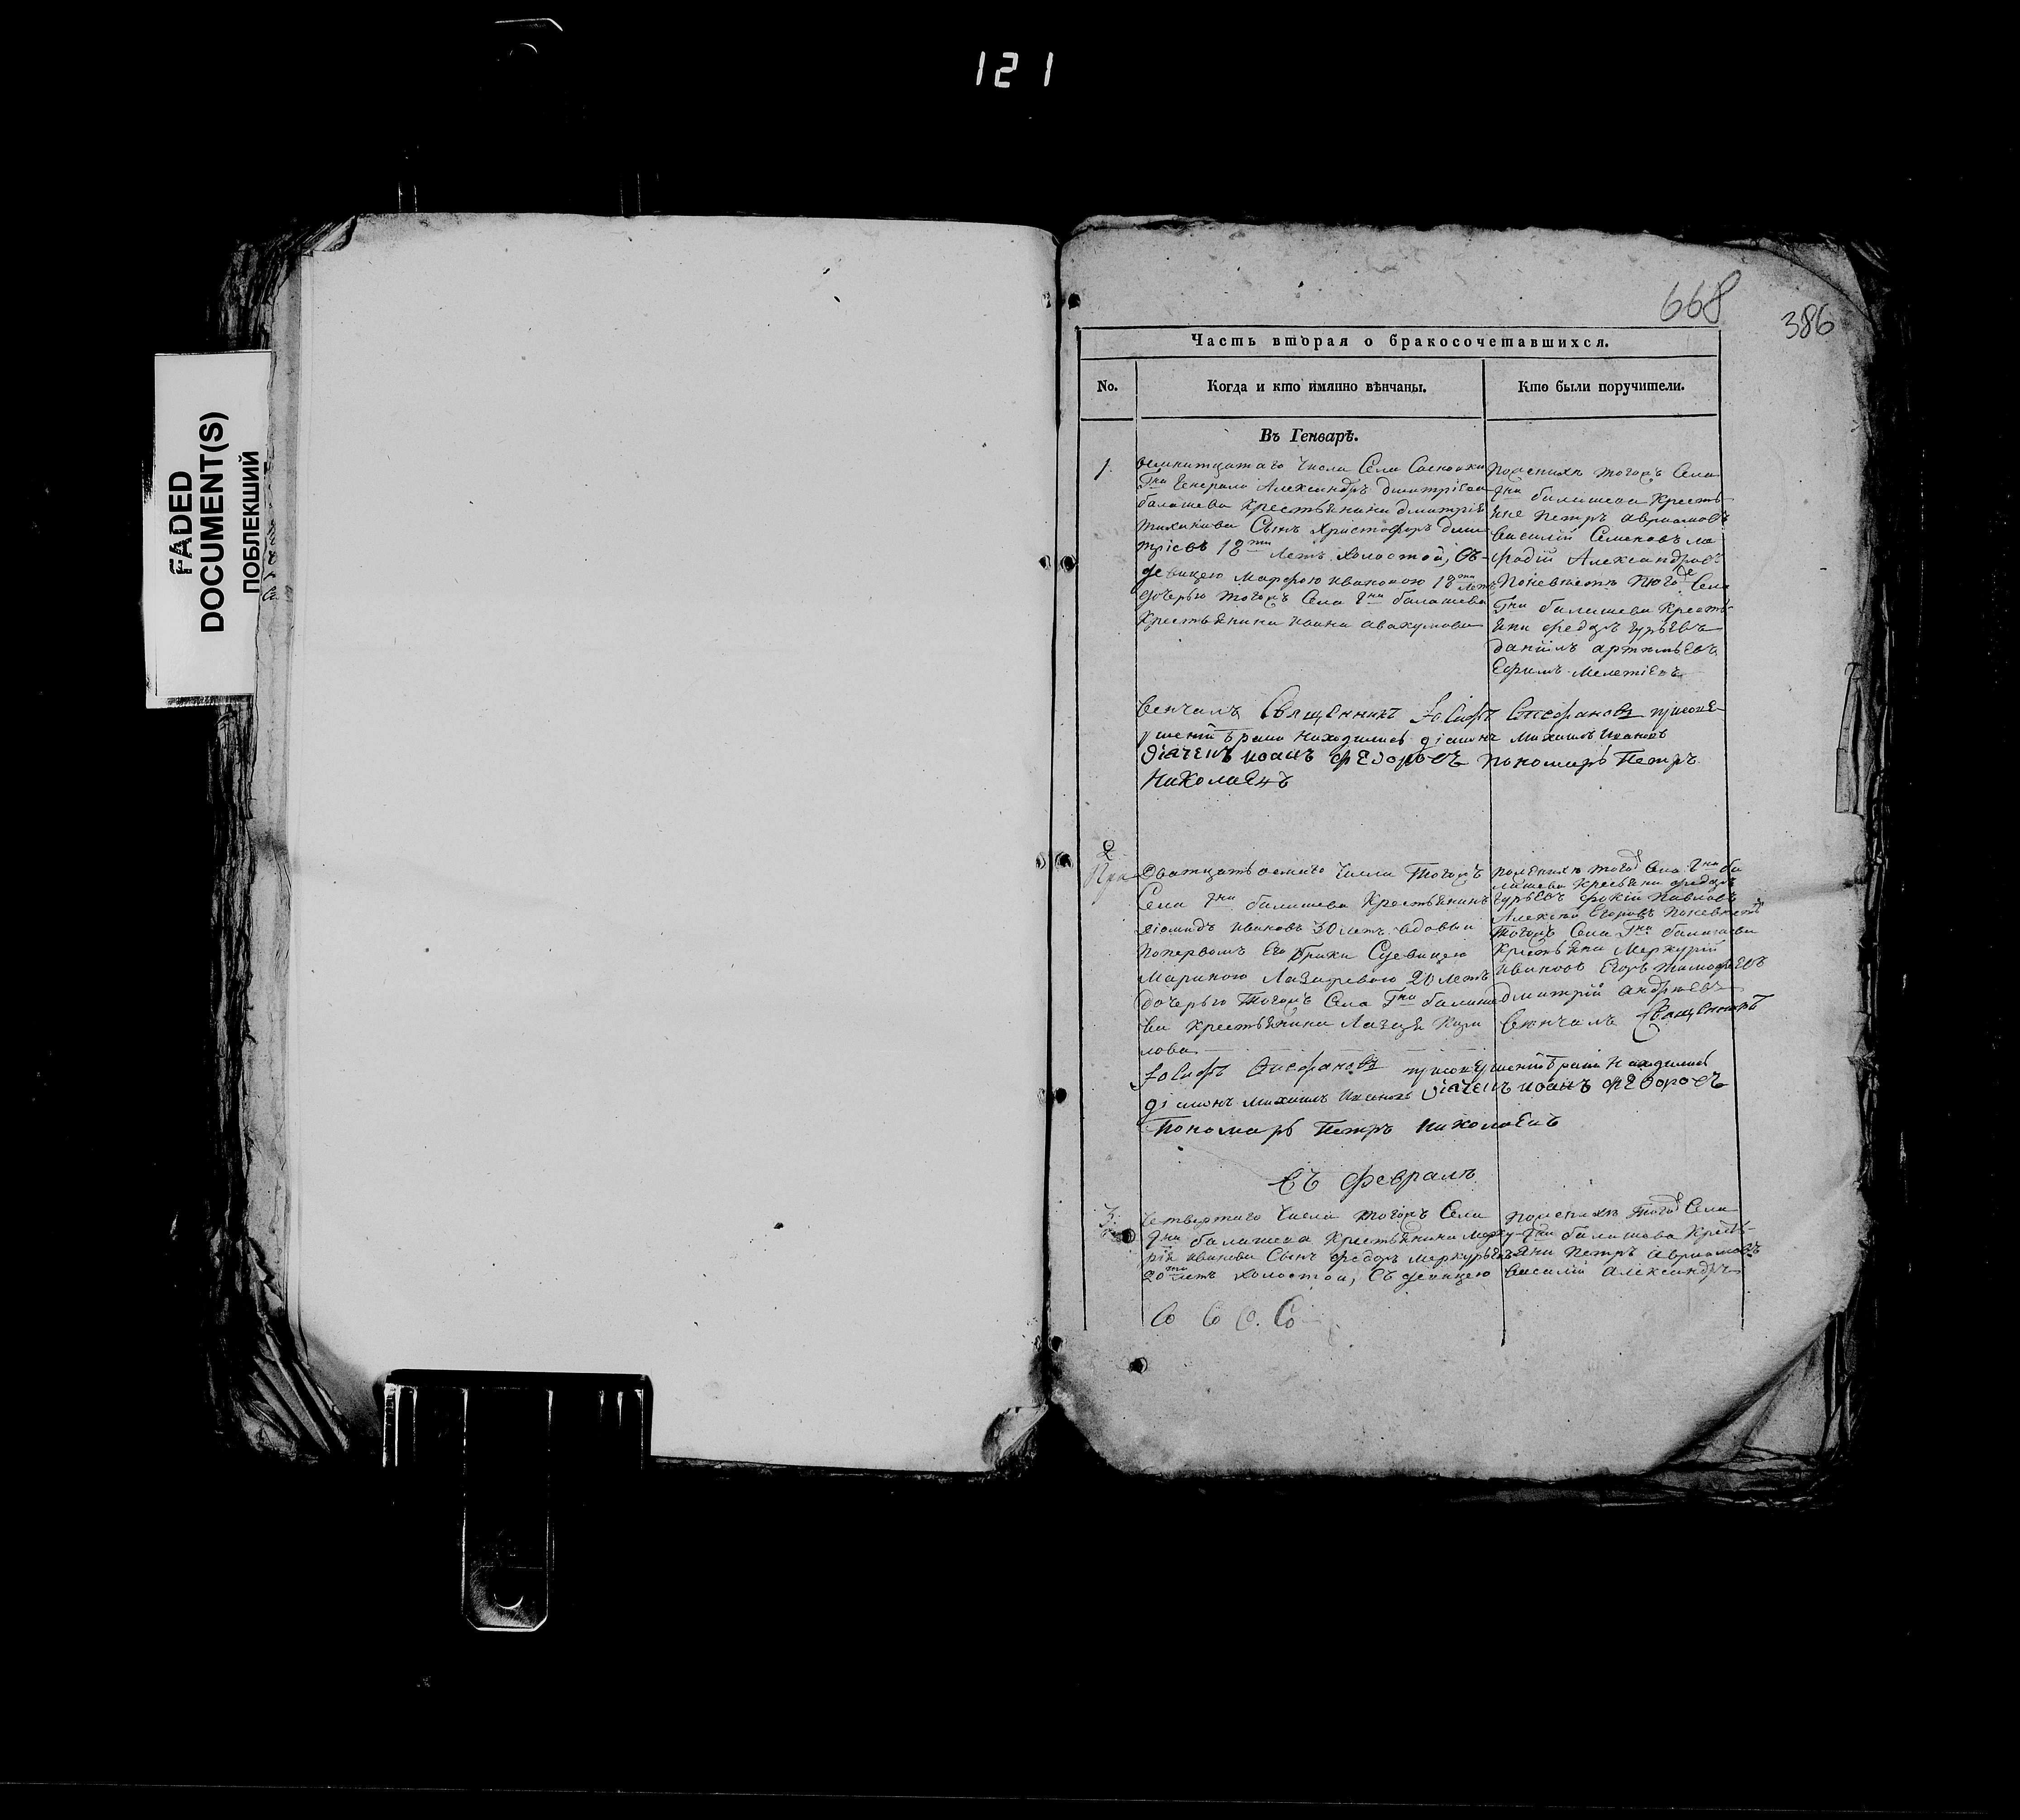 121
FADED
DOCUMENT(S)
ПОБЛЕКШИЙ
668
386
Часть вторая о бракосочетавшихся.
No.
Когда и кто имянно вѣнчаны.
Кто были поручители.
Въ Генварѣ.
1.
числа Села Сосновки
Гна Генерала Александръ Димитрiева
балашева Крестьянина дмитрiя
Сынъ Христофоръ дми
трiевъ 18ти летъ холостой, съ
девицею Марфою ивановою 18ти летъ
дочерью тогожъ Села Гна балашева
Крестьянина ивана авакумова
Поженихѣ тогожъ Села
Гна балашева Кресть
яне Петръ авраамовъ
василiй Семеновъ
Александровъ
Поневѣстѣ тогоже Села
Гна балашева Кресть
яни федоръ гурьевъ
данiилъ артемьевъ
Ефимъ Мелетiевъ
венчалъ Священникъ Iосифъ Стефановъ при
находились дiаконъ Михаилъ Ивановъ
дiачекъ иоанъ федоровъ пономарь Петръ
Николаевъ
2
Дватцать осмаго числа Тогожъ
Села Гна балашева Крестьянинъ
дiомидъ ивановъ 30 летъ вдовый
попервомъ его браке Сдевицею
Мариною Лазаревою 20 летъ
дочерью Тогожъ Села Гна балаше
ва Крестьянина Лазаря
лова
поженихѣ тогожъ Села Гна ба
лашева Кресьяни федоръ
гурьевъ фокiй Павловъ
Алексѣй Егоровъ поневестѣ
Тогожъ Села Гна балашева
Крестьяни Меркурiй
ивановъ Егоръ тимофѣевъ
дмитрiй андрѣевъ
Венчалъ Священникъ
Iосифъ Стефановъ при находились
дiаконъ Михаилъ Ивановъ дiачекъ иоанъ федоровъ
Пономарь Петръ николаевъ
Въ Февралѣ
3.
Четвертаго числа тогожъ Села
Гна балашева Крестьянина Мерку
рiя иванова Сынъ федоръ меркурьевъ
20ти летъ холостой, Съ девицею
поженихѣ тогожъ Села
Гна балашева Кресть
яни Петръ авраамовъ
василiй александръ
Со Со О. Со